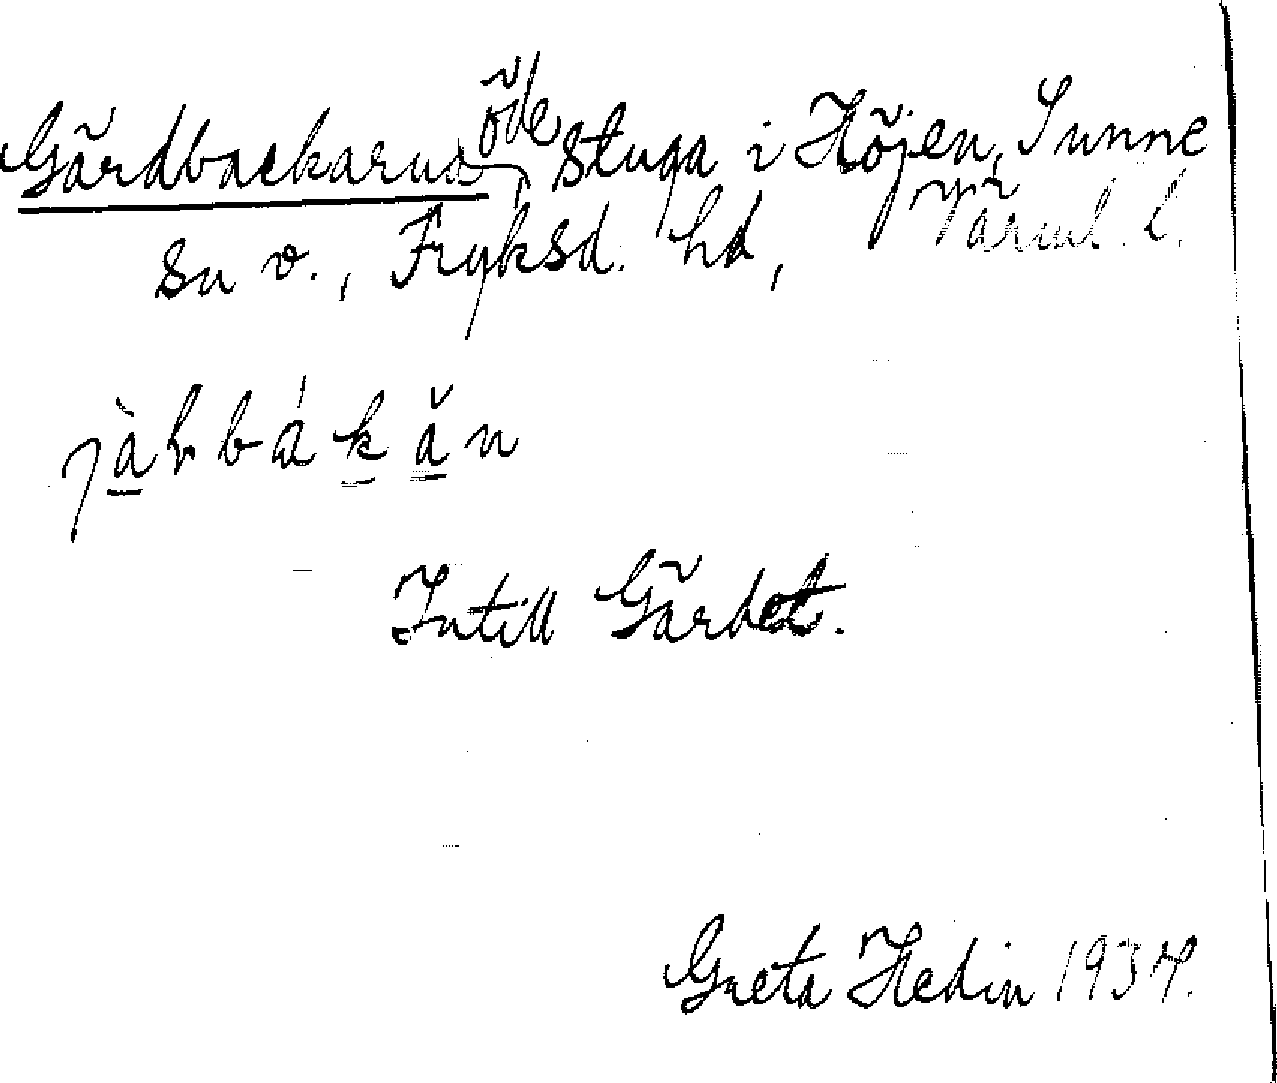 Gärdbackarna, öde stuga i Höjen, Sunne
sn v., Fryksd. hd, Värml. l.
Intill Gärdet.
Greta Hedin 1937.